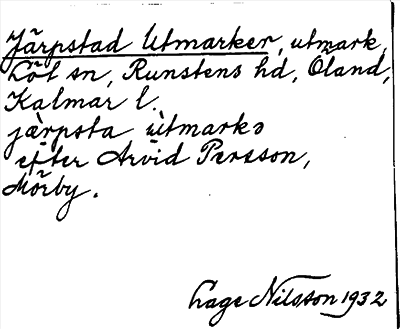 Järpstad Utmarker, utmark,
Löt sn, Runstens hd, Öland,
Kalmar l.
jàrpsta ùtmarkə
efter Arvid Persson,
Mörby.
Lage Nilsson 1932